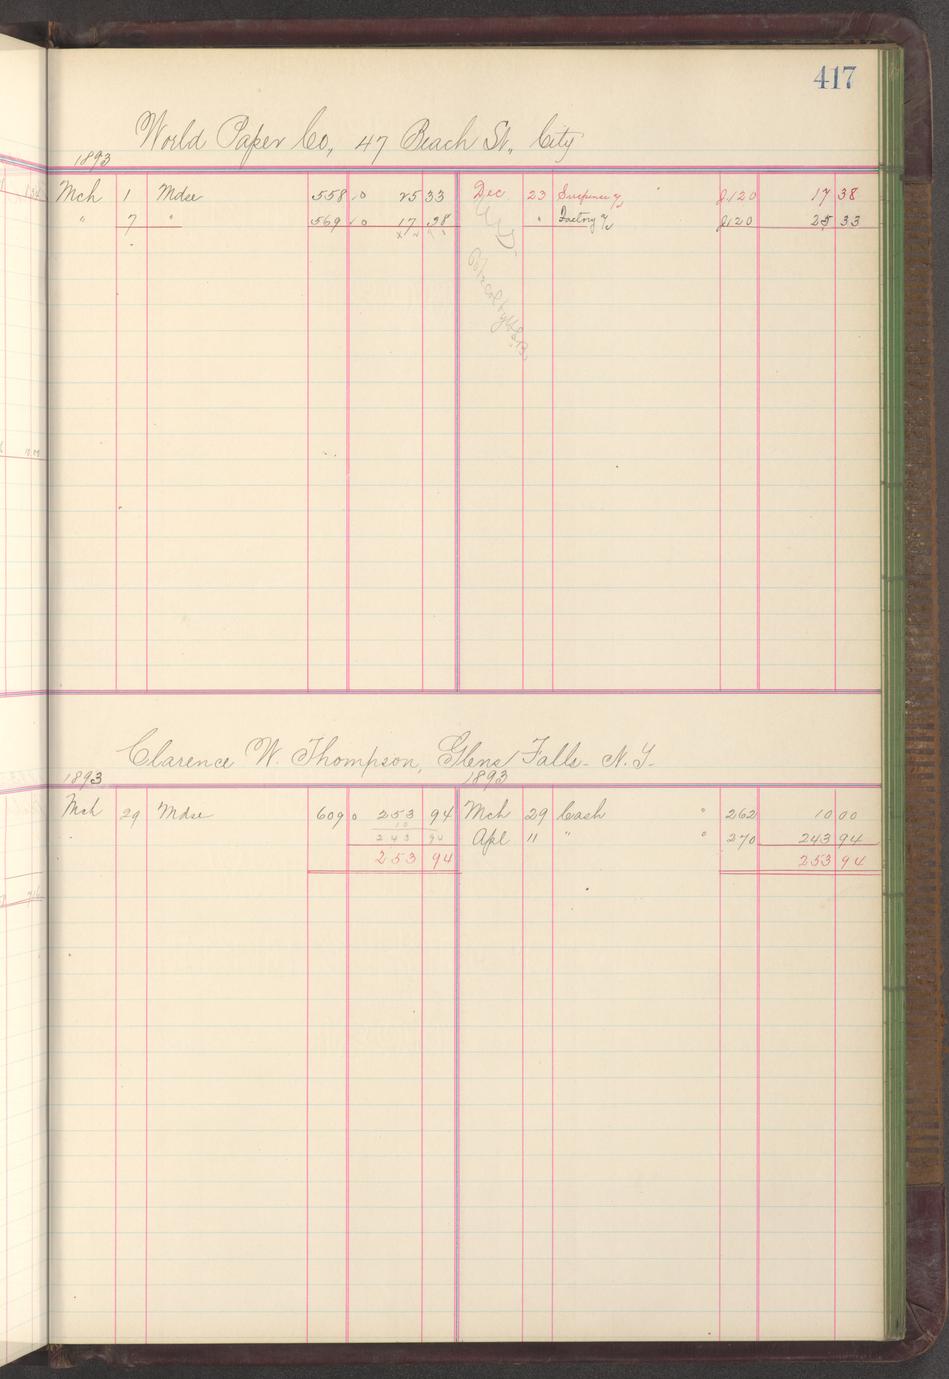 417
World Paper Co, 47 Beach St., City
1893
Mch 1 Mdse 558 10 25 33 Dec 23 Suspense % J120 17 38
" 7 " 569 10 17 38 " Factory % J120 25 33
Clarence W. Thompson, Glens Falls - N.Y.
1893 1893
Mch 29 Mdse 609 0 253 94 Mch 29 Cash " 262 10 00
10
243 94 Apl 11 " " 270 243 94
253 94 253 94